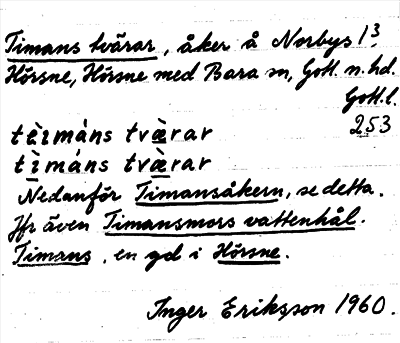 Timans tvärar, åker å Norbys 1³,
Hörsne, Hörsne med Bara sn, Gotl. n. hd.
Gotl. l.
253
tèimáns tvæ̀rar
tì̱máns tvæ̱̀rar
Nedanför Timansåkern, se detta.
Jfr även Timansmors vattenhål.
Timans, en gd i Hörsne.
Inger Eriksson 1960.